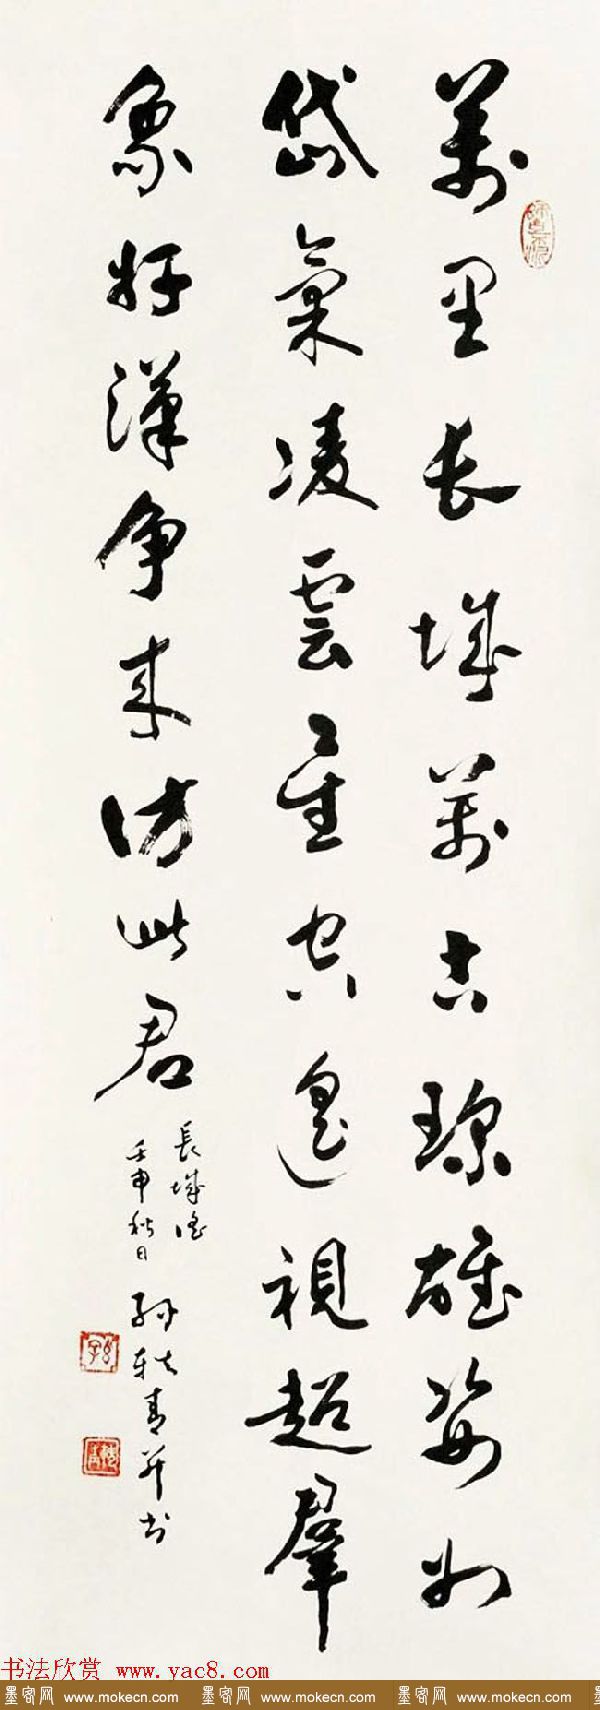 萬里长城萬古珍雄姿如
岱氣凌雲星空遙視超羣
象好漢争来访此君
長城谣
壬申秋日 孙轶青并书
书法欣赏 www.yac8.com
墨客网 www.mokecn.com 墨客网 www.mokecn.com 墨客网 www.mokecn.com